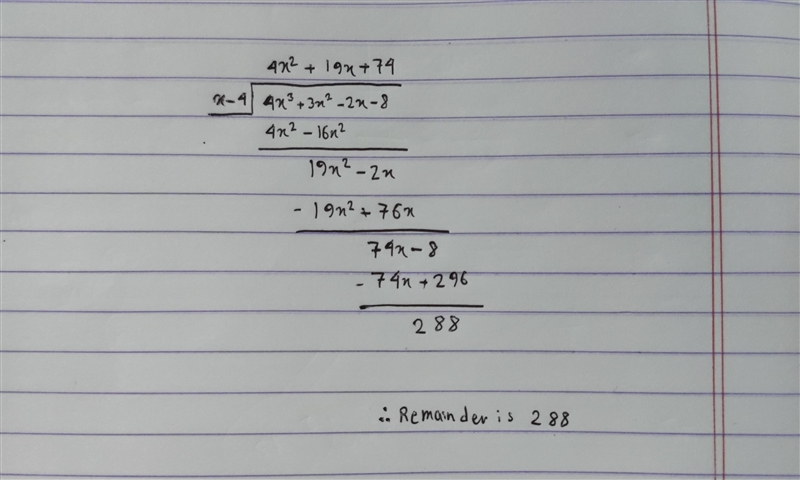 4x² + 19x + 74
x - 4 4x³ + 3x² - 2x - 8
4x² - 16x²
19x² - 2x
- 19x² + 76x
74x - 8
- 74x + 296
288
∴ Remainder is 288